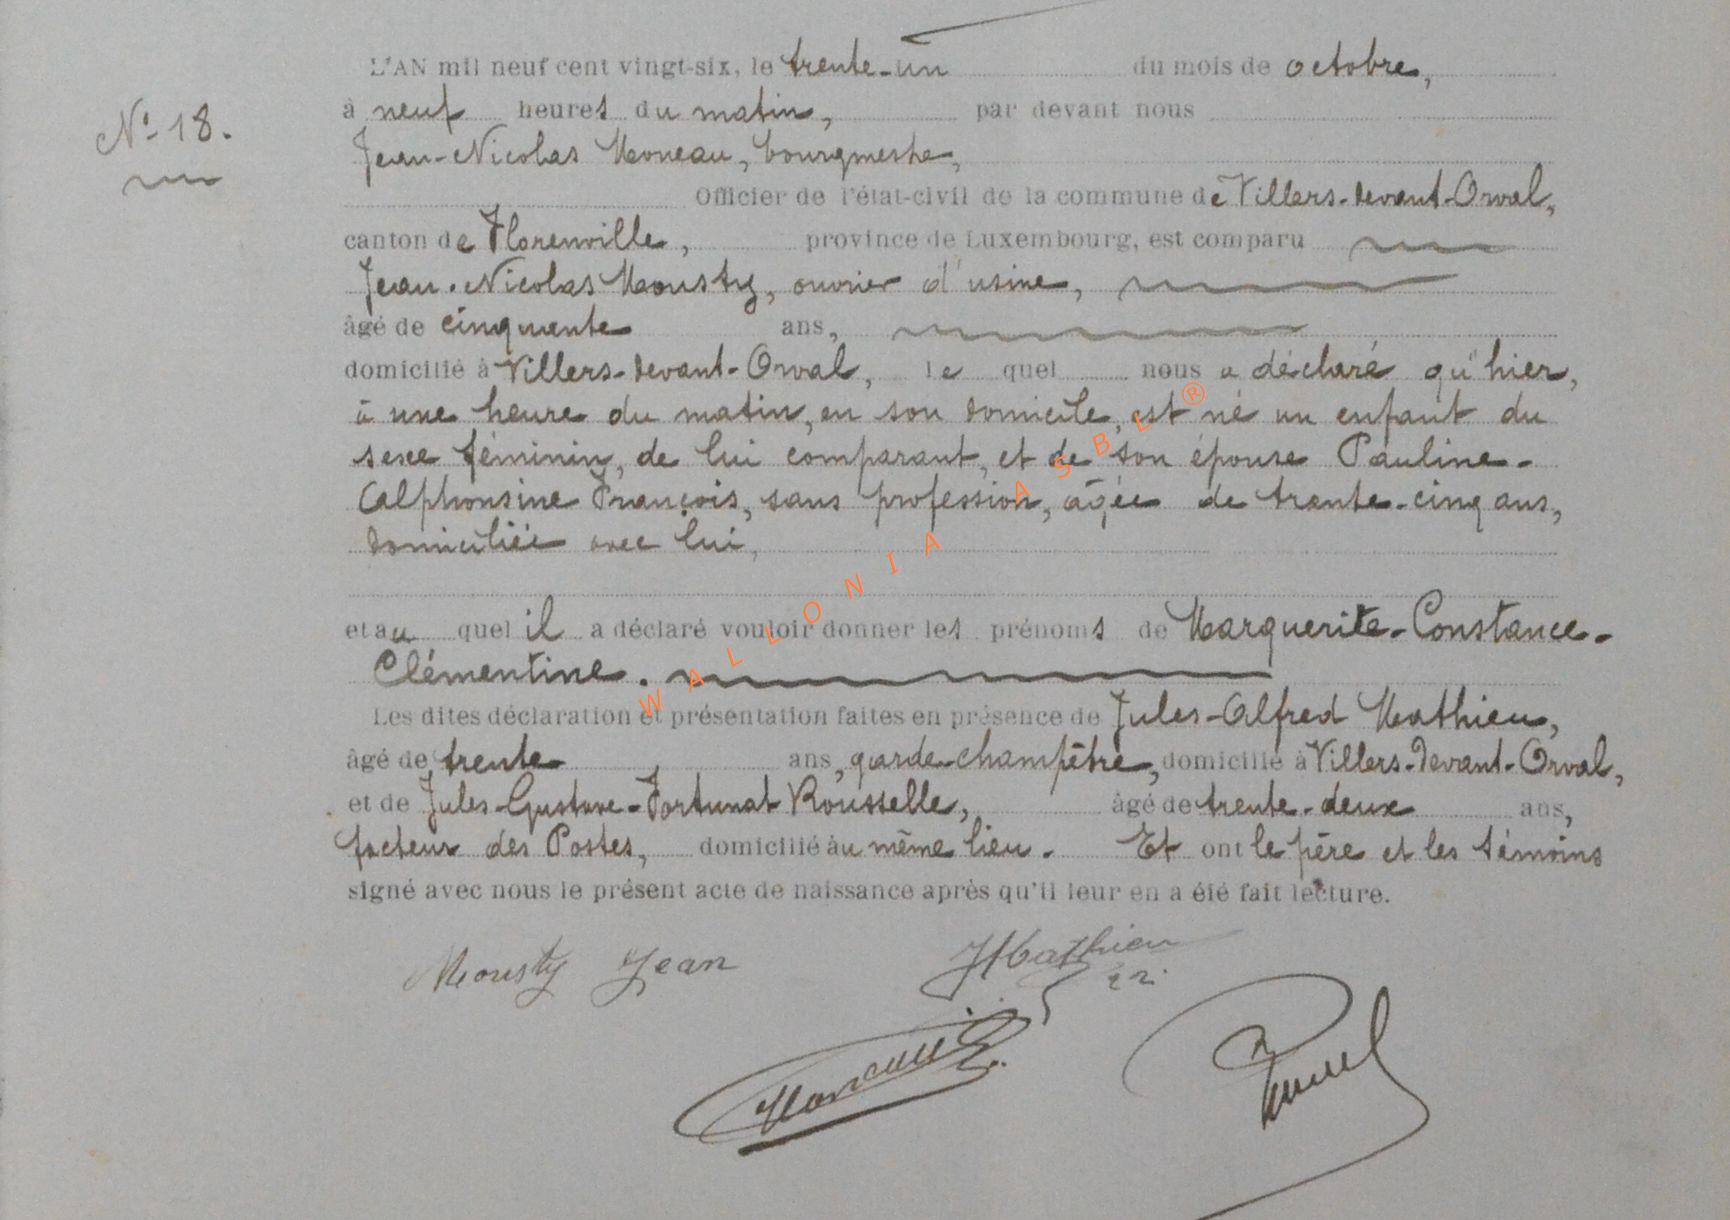 L'AN mil neuf cent vingt-six, le trente-un du mois de octobre,
N° 18.
à neuf heures du matin, par devant nous
Jean-Nicolas Moneau, bourgmestre,
Officier de l'état-civil de la commune de Villers-devant-Orval,
canton de Florenville, province de Luxembourg, est comparu
Jean-Nicolas Mousty, ouvrier d'usine,
âgé de cinquante ans,
domicilié à Villers-devant-Orval, le quel nous a déclaré qu'hier,
à une heure du matin, en son domicile, est né un enfant du
sexe féminin, de lui comparant, et de son épouse Pauline-
Alphonsine François, sans profession, âgée de trente-cinq ans,
domiciliée avec lui,
et au quel il a déclaré vouloir donner les prénoms de Marguerite-Constance-
Clémentine.
Les dites déclaration et présentation faites en présence de Jules-Alfred Mathieu,
âgé de trente ans, garde-champêtre, domicilié à Villers-devant-Orval,
et de Jules-Gustave-Fortunat Rousselle, âgé de trente-deux ans,
facteur des Postes, domicilié au même lieu. Et ont le père et les témoins
signé avec nous le présent acte de naissance après qu'il leur en a été fait lecture.
WALLONIA ASBL ®
Mousty Jean
JMathieu